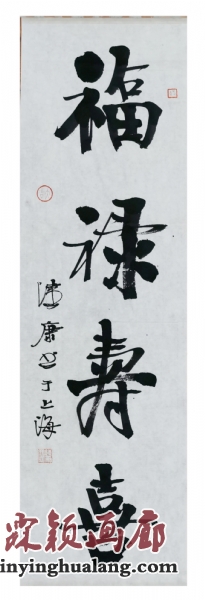 福禄寿喜
康书于上海
霖颖画廊
inyinghualang.com